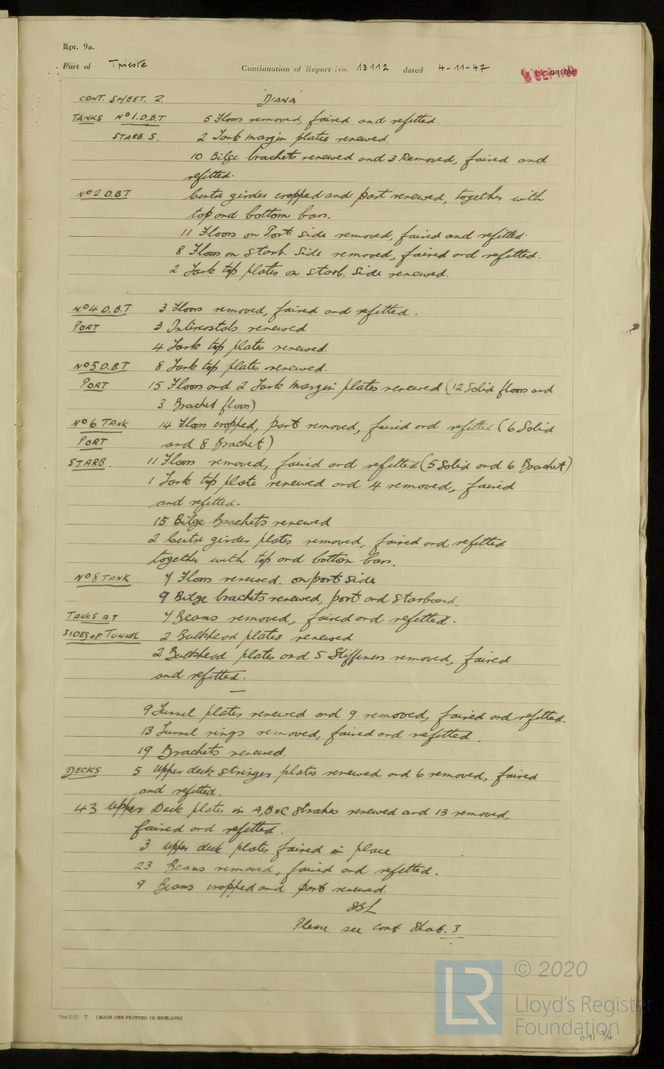 Rpt. 9a.
Port of Trieste Continuation of Report No. 13112 dated 4-11-47
CONT. SHEET. 2. DIANA
TANKS No 1. D.B.T 5 Floors removed, faired and refitted.
STARB. S. 2 Tank margin plates renewed,
10 Bilge brackets renewed and 3 Removed, faired and
refitted.
No 2 D.B.T Centre girder cropped and part renewed, together with
top and bottom bars.
11 Floors on Port side removed, faired and refitted.
8 Floors on Starb. Side removed, faired and refitted.
2 Tank top plates on starb. side renewed.
No 4 D.B.T 3 Floors removed, faired and refitted.
PORT 3 Intercostals renewed
4 Tank top plates renewed.
No 5 D.B.T 8 Tank top plates renewed.
PORT 15 Floors and 2 Tank margin plates renewed (12 Solid floors and
3 Bracket floors)
No 6 TANK 14 Floors cropped, part removed, faired and refitted (6 Solid
PORT and 8 Bracket)
STARB. 11 Floors removed, faired and refitted (5 Solid and 6 Bracket)
1 Tank top plate renewed and 4 removed, faired
and refitted.
15 Bilge Brackets renewed
2 Centre girder plates removed, faired and refitted
together with top and bottom bars.
No 8 TANK 7 Floors renewed, on port side
9 Bilge brackets renewed, port and starboard.
TANKS AT 7 Beams removed, faired and refitted.
SIDES OF TUNNEL 2 Bulkhead plates renewed
2 Bulkhead plates and 5 Stiffeners removed, faired
and refitted.
9 Tunnel plates renewed and 9 removed, faired and refitted.
13 Tunnel rings removed, faired and refitted.
19 Brackets renewed.
DECKS 5 Upper deck stringer plates renewed and 6 removed, faired
and refitted.
43 Upper Deck plates in A, B & C Strakes renewed and 13 removed,
faired and refitted.
3 upper deck plates faired in place
23 Beams removed, faired and refitted.
9 Beams cropped and part renewed.
Please see cont Sheet. 3
(MADE AND PRINTED IN ENGLAND)
LR © 2020
Lloyd's Register
Foundation